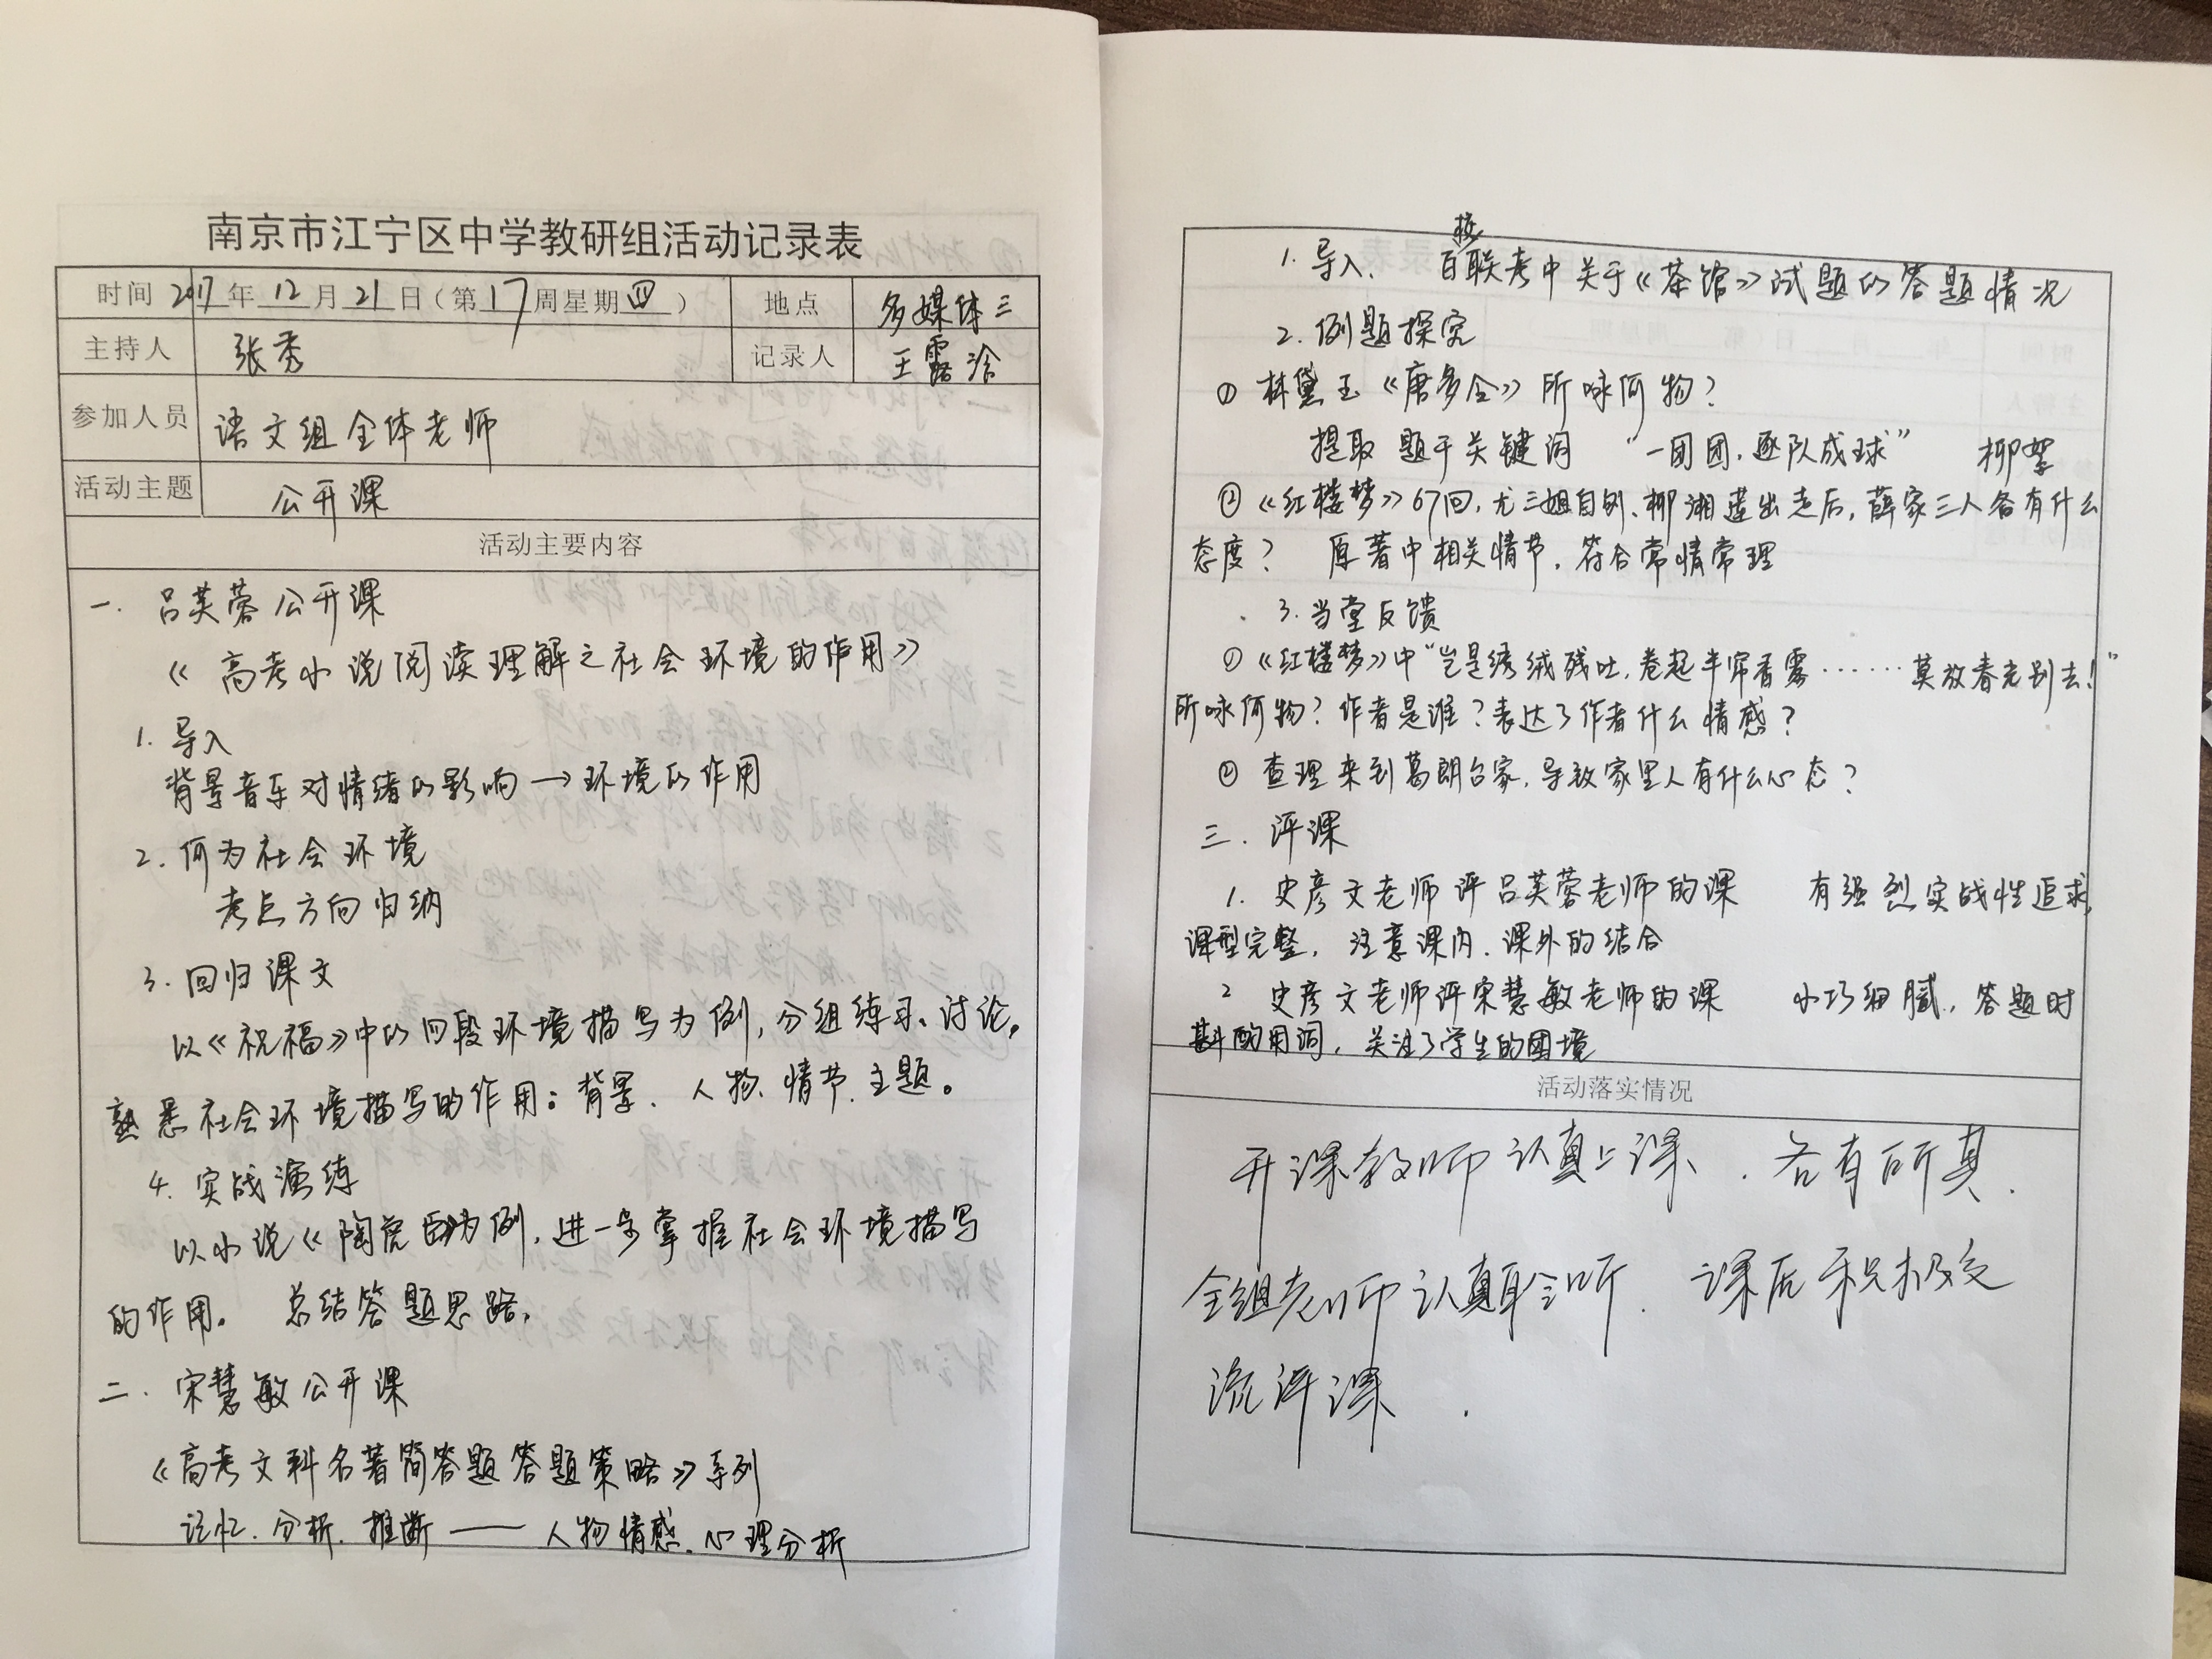 南京市江宁区中学教研组活动记录表
时间 2017年 12 月 21 日（第 17 周星期 四 ） 地点 多媒体三
主持人 张秀 记录人 王露
参加人员 语文组全体老师
活动主题 公开课
活动主要内容
一. 吕芙蓉公开课
《高考小说阅读理解之社会环境的作用》
1. 导入
背景音乐对情绪的影响→环境的作用
2. 何为社会环境
考点方向归纳
3. 回归课文
以《祝福》中的四段环境描写为例，分组练习、讨论，
熟悉社会环境描写的作用：背景、人物、情节、主题。
4. 实战演练
以小说《陶虎臣》为例，进一步掌握社会环境描写
的作用。 总结答题思路。
二. 宋慧敏公开课
《高考文科名著简答题答题策略》系列
记忆、分析、推断——人物情感、心理分析
1. 导入、 百联考中关于《茶馆》试题的答题情况
2. 例题探究
① 林黛玉《唐多令》所咏何物？
提取 题干关键词 “一团团，逐队成球” 柳絮
② 《红楼梦》67回，尤三姐自刎、柳湘莲出走后，薛家三人各有什么
态度？ 原著中相关情节，符合常情常理
3. 当堂反馈
① 《红楼梦》中“岂是绣绒残吐，卷起半帘香雾……莫放春光别去！”
所咏何物？作者是谁？表达了作者什么情感？
② 查理来到葛朗台家，导致家里人有什么心态？
三. 评课
1. 史彦文老师评吕芙蓉老师的课 有强烈实战性追求，
课型完整，注意课内、课外的结合
2 史彦文老师评宋慧敏老师的课 小巧细腻，答题时
斟酌用词，关注了学生的困境
活动落实情况
开课教师认真上课、各有所
全组老师认真聆听. 课后积极交
流评课.